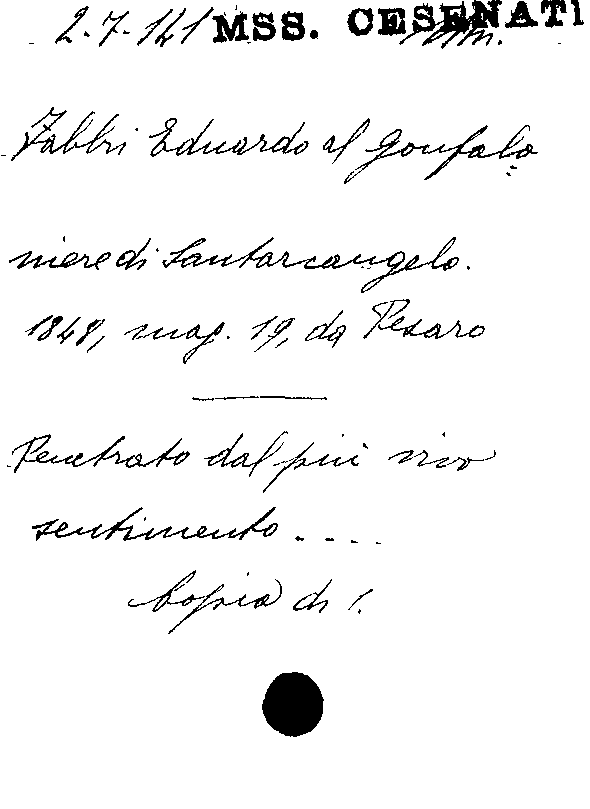 2-7-141 MSS. CESENATI
Fabbri Eduardo al Gonfalo
niere di Santarcangelo.
1848, mag. 19, da Pesaro
Penetrato dal più vivo
sentimento ....
Copia di 1.